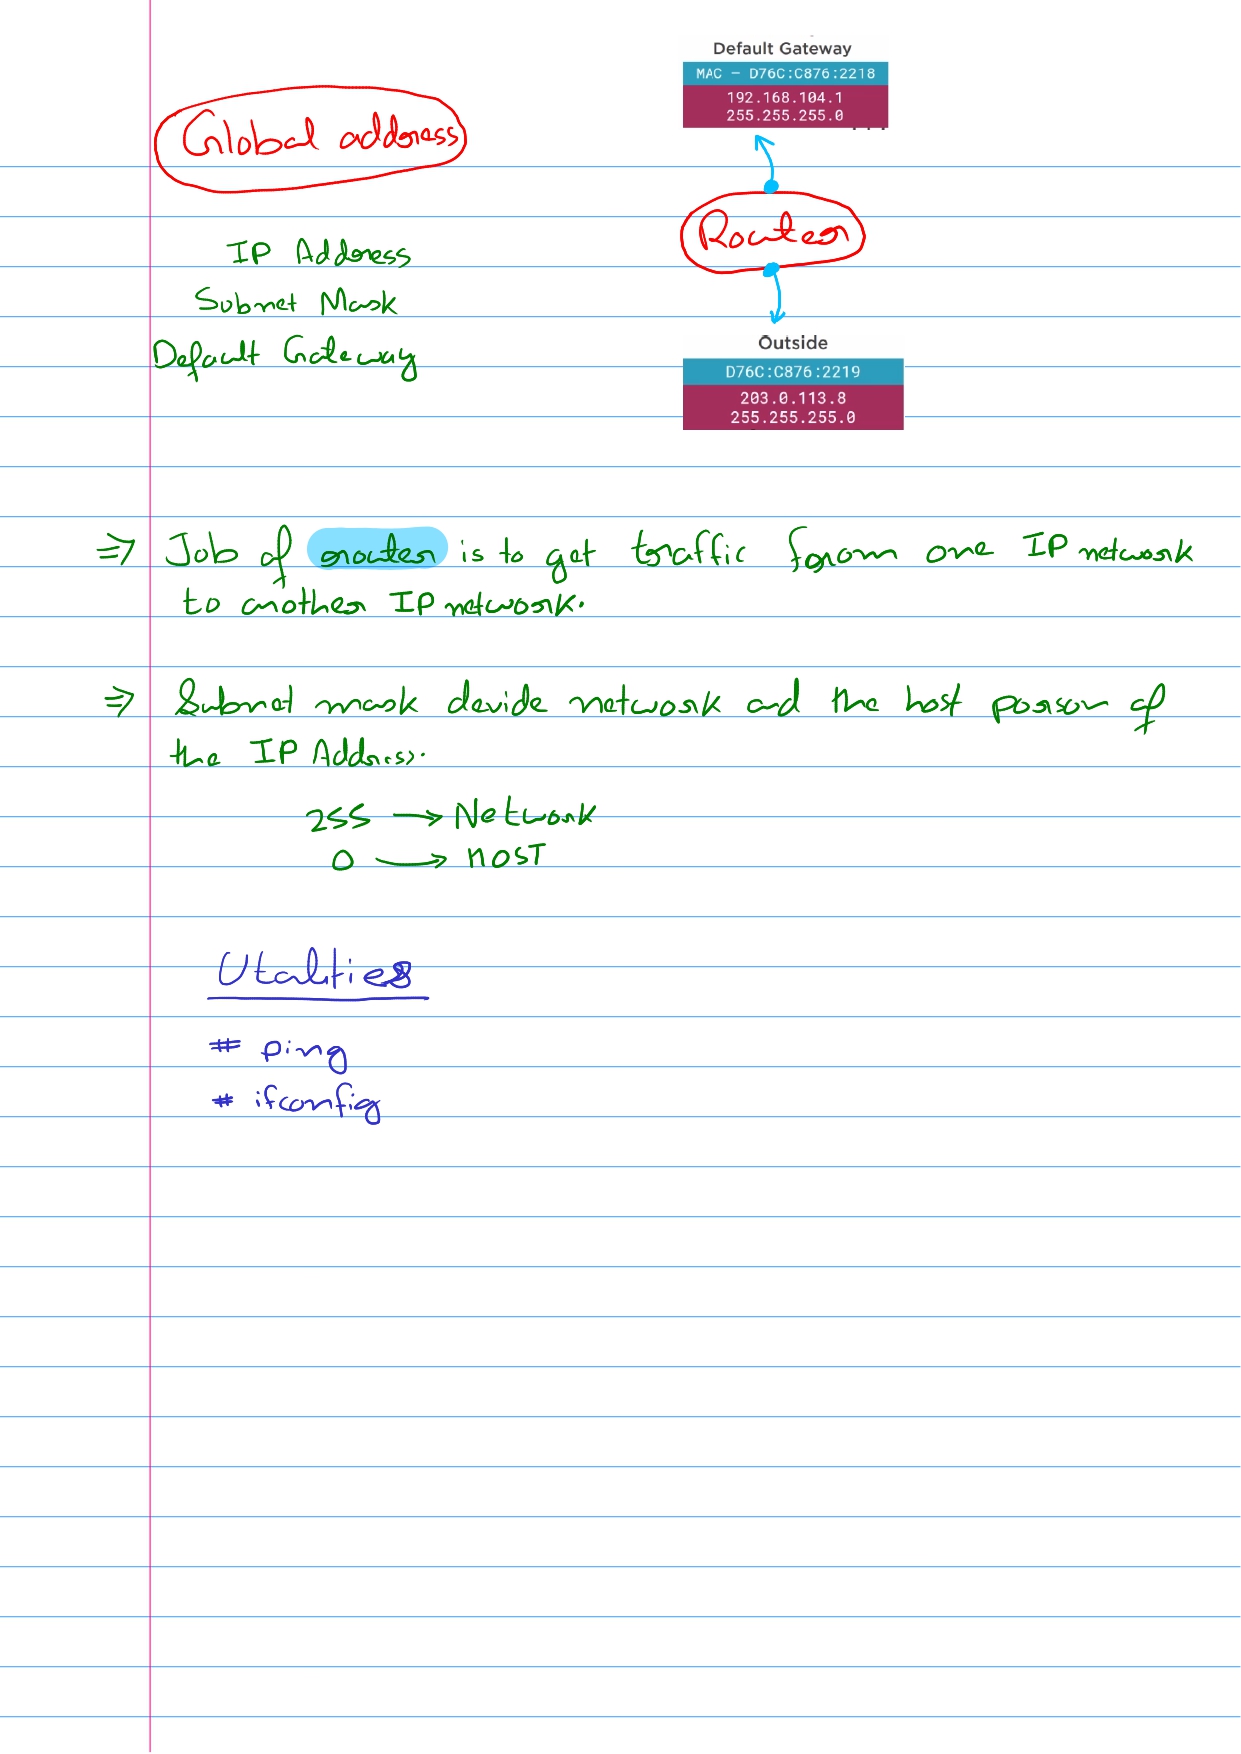 Global address
IP Address
Subnet Mask
Default Gateway
Default Gateway
MAC – D76C:C876:2218
192.168.104.1
255.255.255.0
Router
Outside
D76C:C876:2219
203.0.113.8
255.255.255.0
⇒ Job of router is to get traffic from one IP network
to another IP network.
⇒ Subnet mask devide network and the host porson of
the IP Address.
255 → Network
0 → HOST
Utalities
# ping
# ifconfig